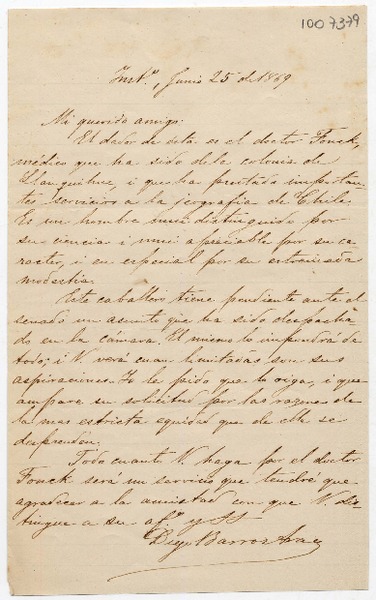 1007379
Inst.º, Junio 25 de 1869
Mi querido amigo:
El dador de ésta es el doctor Fonck,
médico que ha sido de la colonia de
Llanquihue, i que ha prestado importan-
tes servicios a la jeografía de Chile.
Es un hombre mui distinguido por
su ciencia i mui apreciable por su ca-
racter, i en especial por su estremada
modestia.
Este caballero tiene pendiente ante el
senado un asunto que ha sido despacha-
do en la cámara. El mismo lo impondra de
todo; i V. verá cuan limitadas son sus
aspiraciones. Yo le pido que lo oiga, i que
ampare su solicitud por las razones de
la mas estricta equidad que de ella se
desprenden.
Todo cuanto V. haga por el doctor
Fonck será un servicio que tendré que
agradecer a la amistad con que V. dis-
tingue a su af.º y SS
Diego Barros Arana